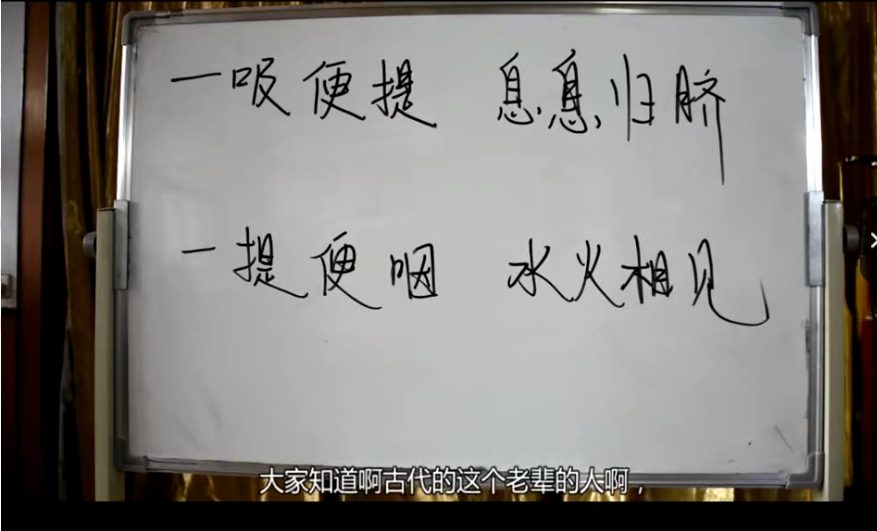 一吸便提 息息归脐
一提便咽 水火相见
大家知道啊古代的这个老辈的人啊，